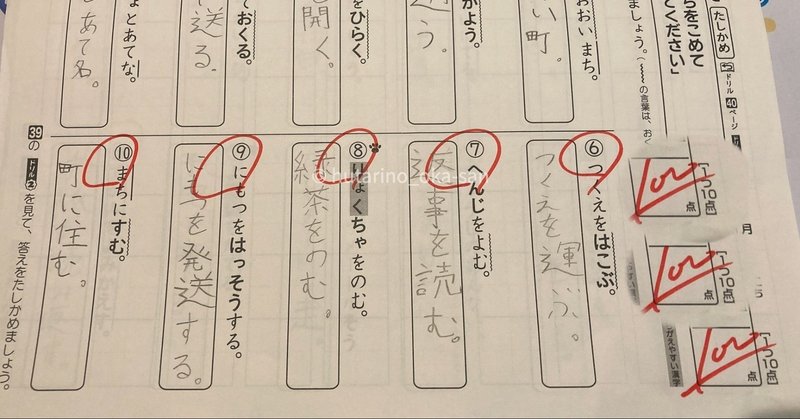 たしかめ
ドリル40ページ
ちをこめて
ください」
ましょう。(〰の言葉は、おく
おおいまち。
い町。
がよう。
通う。
をひらく。
開く。
ておくる。
送る。
ょとあてな。
とあて名。
1つ10点
100点
1つ10点
100点
1つ10点
100点
まちがえやすい漢字
⑥つくえをはこぶ。
つくえを運ぶ。
⑦へんじをよむ。
返事を読む。
⑧りょくちゃをのむ。
緑茶をのむ。
⑨にもつをはっそうする。
にもつを発送する。
⑩まちにすむ。
町に住む。
39の ドリル②を見て、答えをたしかめましょう。
@hikarino_oka-san